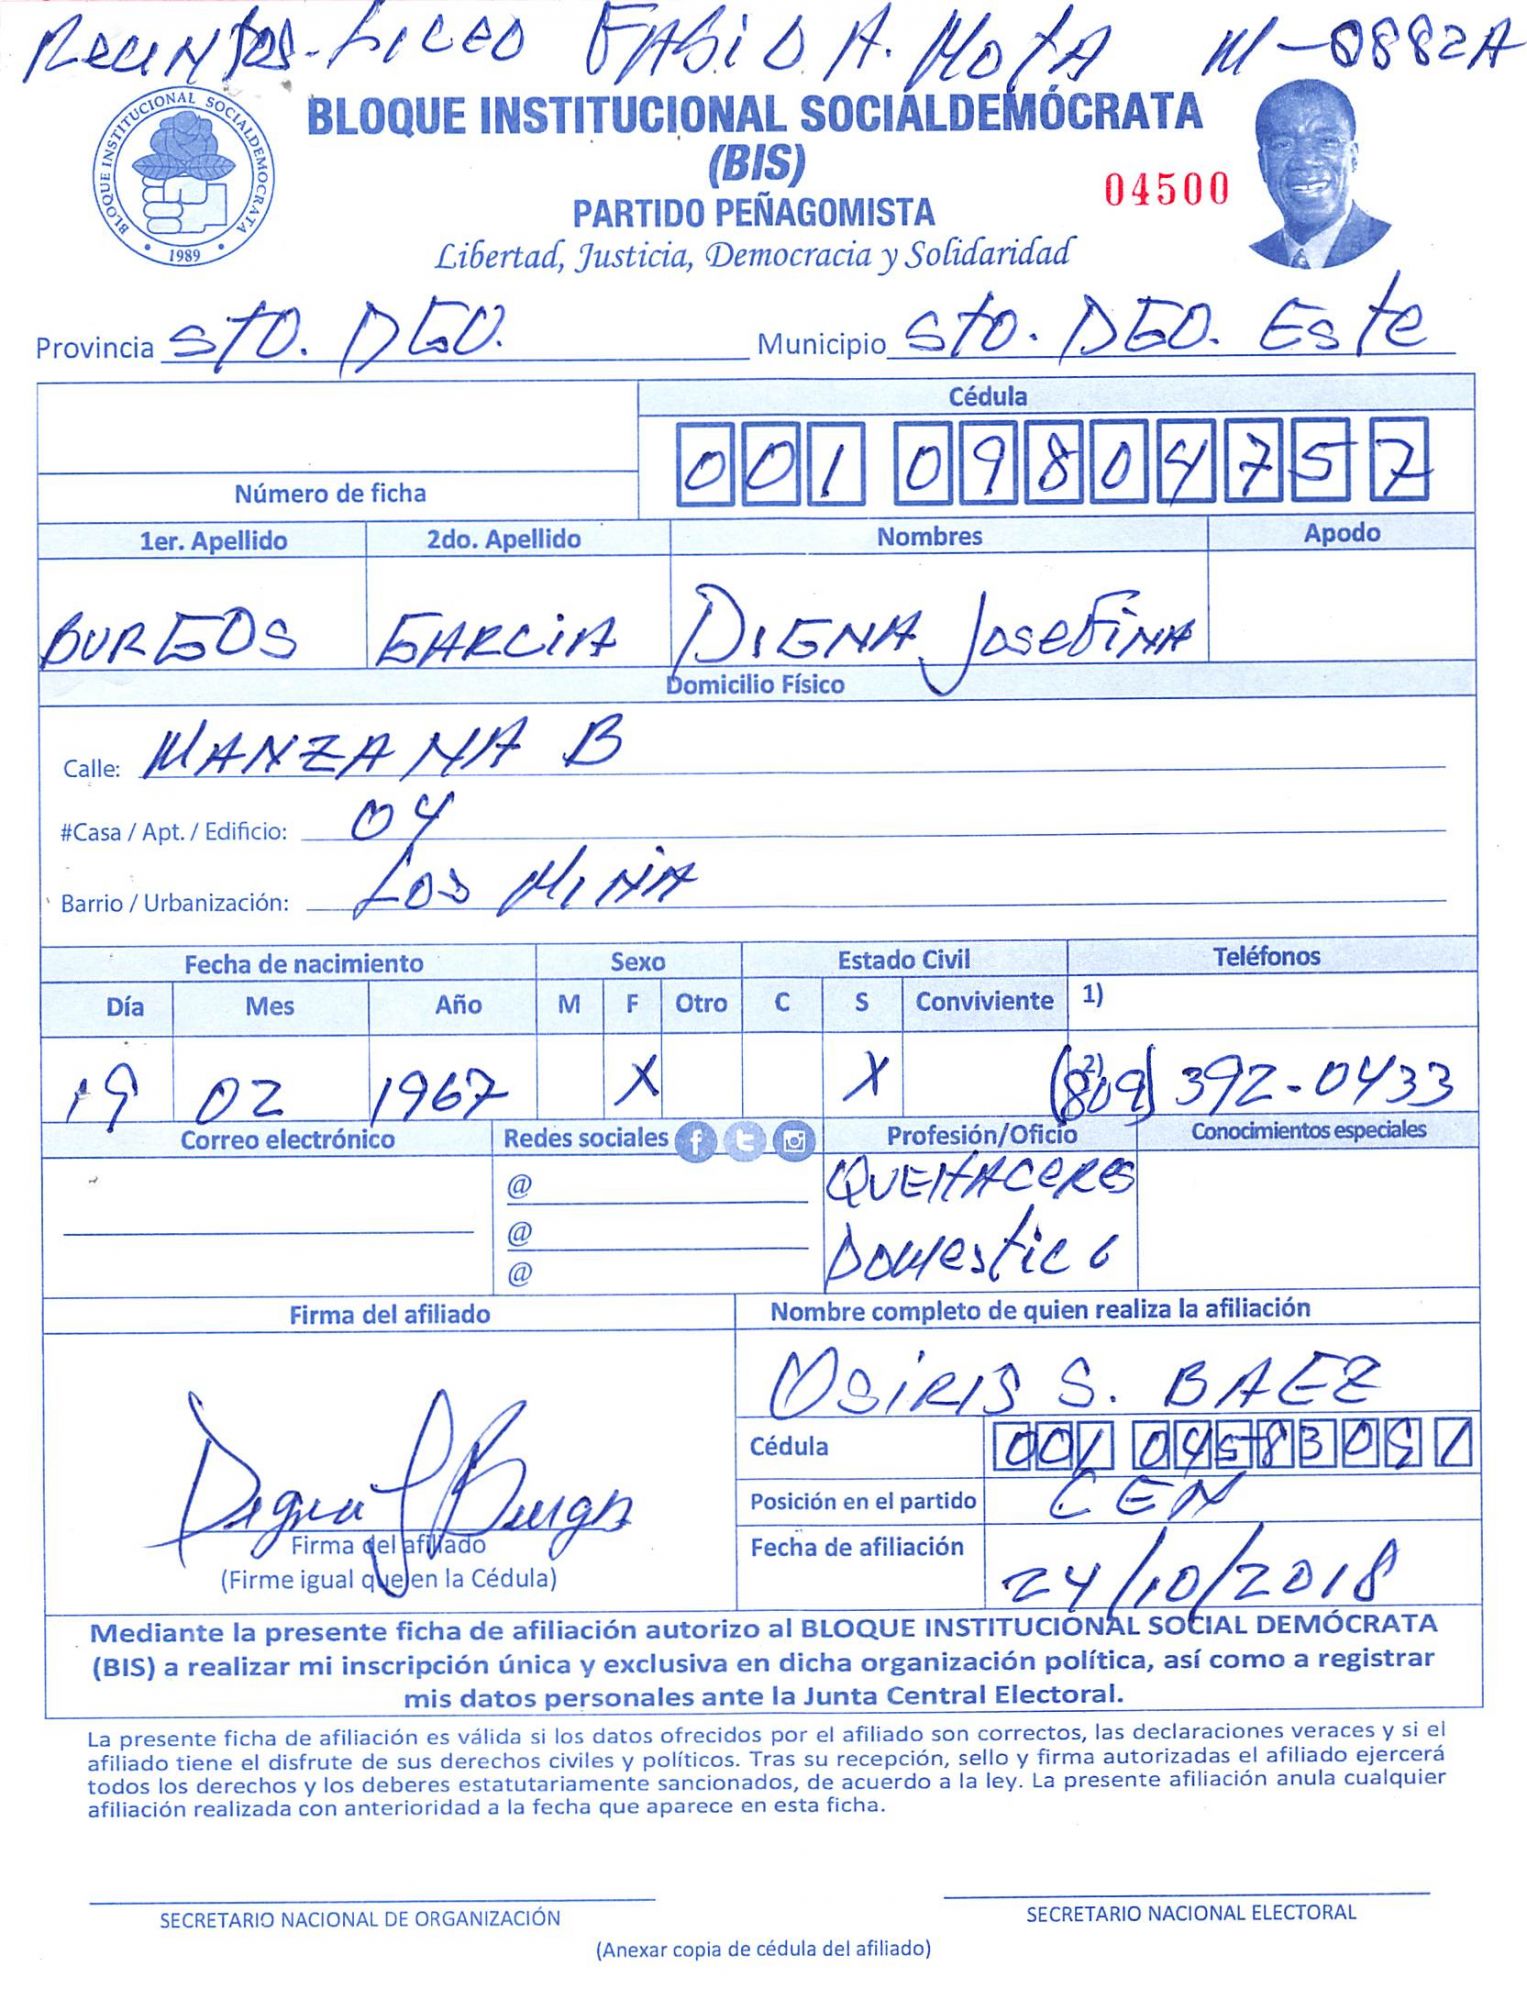 Recintos-Liceo FABiO A. MOTA M-0882A
BLOQUE INSTITUCIONAL SOCIALDEMÓCRATA
BLOQUE INSTITUCIONAL SOCIALDEMÓCRATA
1989
(BIS)
04500
PARTIDO PEÑAGOMISTA
Libertad, Justicia, Democracia y Solidaridad
Provincia STO. DGO. Municipio STO. DGO. Este
Cédula
001 0980475 7
Número de ficha
1er. Apellido 2do. Apellido Nombres Apodo
BURGOS GARCiA DIGNA JoseFiNA
Domicilio Físico
Calle: MANZANA B
#Casa / Apt. / Edificio: 04
Barrio / Urbanización: Los MiNA
Fecha de nacimiento Sexo Estado Civil Teléfonos
Día Mes Año M F Otro C S Conviviente 1)
19 02 1967 X X 2) (809) 392-0433
Correo electrónico Redes sociales Profesión/Oficio Conocimientos especiales
@ QUEHACeRes
@ Domestico
@
Firma del afiliado Nombre completo de quien realiza la afiliación
OSiRIS S. BAEZ
Cédula 001 0458309 1
Posición en el partido CEN
Digna J Burgos
Firma del afiliado
Fecha de afiliación 24/10/2018
(Firme igual que en la Cédula)
Mediante la presente ficha de afiliación autorizo al BLOQUE INSTITUCIONAL SOCIAL DEMÓCRATA
(BIS) a realizar mi inscripción única y exclusiva en dicha organización política, así como a registrar
mis datos personales ante la Junta Central Electoral.
La presente ficha de afiliación es válida si los datos ofrecidos por el afiliado son correctos, las declaraciones veraces y si el
afiliado tiene el disfrute de sus derechos civiles y políticos. Tras su recepción, sello y firma autorizadas el afiliado ejercerá
todos los derechos y los deberes estatutariamente sancionados, de acuerdo a la ley. La presente afiliación anula cualquier
afiliación realizada con anterioridad a la fecha que aparece en esta ficha.
SECRETARIO NACIONAL DE ORGANIZACIÓN SECRETARIO NACIONAL ELECTORAL
(Anexar copia de cédula del afiliado)